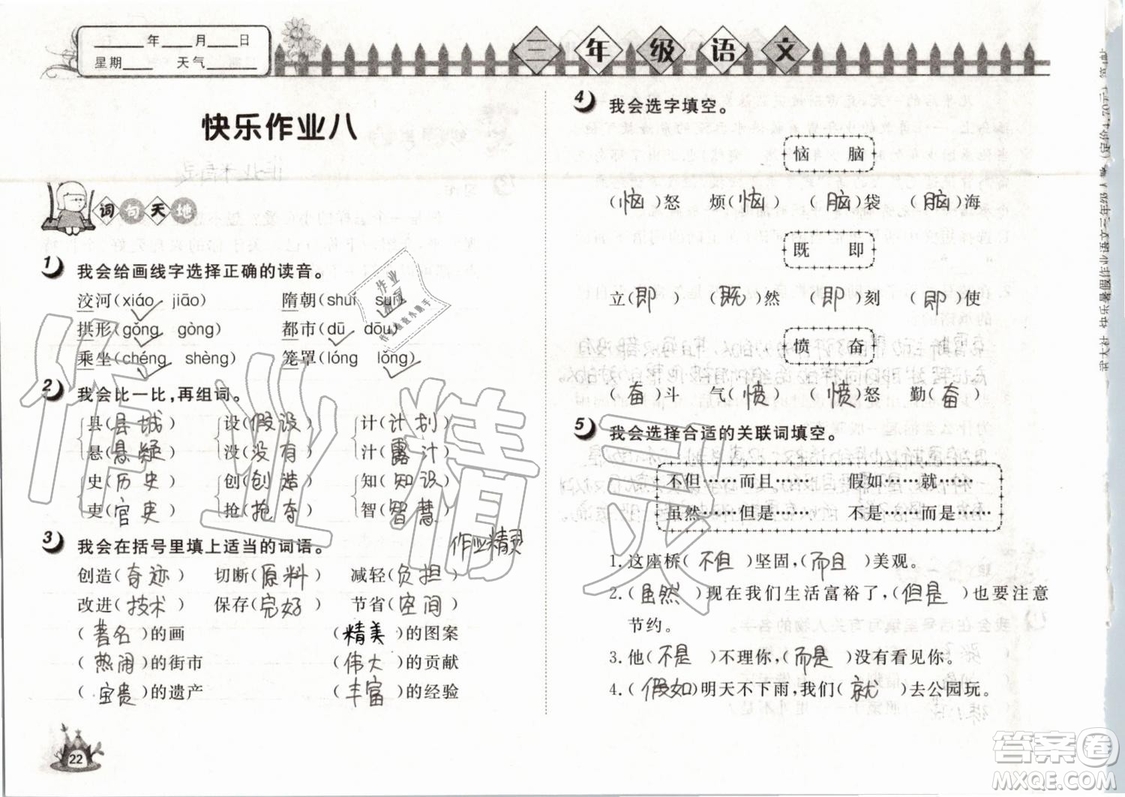 ____年____月____日
星期____ 天气______
三年级语文
快乐作业八
词句天地
1 我会给画线字选择正确的读音。
洨河(xiáo jiāo) 隋朝(shuí suí)
拱形(gǒng gòng) 都市(dū dōu)
乘坐(chéng shèng) 笼罩(lóng lǒng)
2 我会比一比,再组词。
县(县城) 设(假设) 计(计划)
悬(悬疑) 没(没有) 汁(露汁)
史(历史) 创(创造) 知(知识)
吏(官吏) 抢(抢夺) 智(智慧)
3 我会在括号里填上适当的词语。
创造(奇迹) 切断(原料) 减轻(负担)
改进(技术) 保存(完好) 节省(空间)
(著名)的画 (精美)的图案
(热闹)的街市 (伟大)的贡献
(宝贵)的遗产 (丰富)的经验
22
4 我会选字填空。
恼 脑
(恼)怒 烦(恼) (脑)袋 (脑)海
既 即
立(即) (既)然 (即)刻 (即)使
愤 奋
(奋)斗 气(愤) (愤)怒 勤(奋)
5 我会选择合适的关联词填空。
不但……而且…… 假如……就……
虽然……但是…… 不是……而是……
1.这座桥(不但)坚固,(而且)美观。
2.(虽然)我们现在生活富裕了,(但是)也要注意
节约。
3.他(不是)不理你,(而是)没有看见你。
4.(假如)明天不下雨,我们(就)去公园玩。
作业精灵
作业精灵
答案卷
MXQE.COM